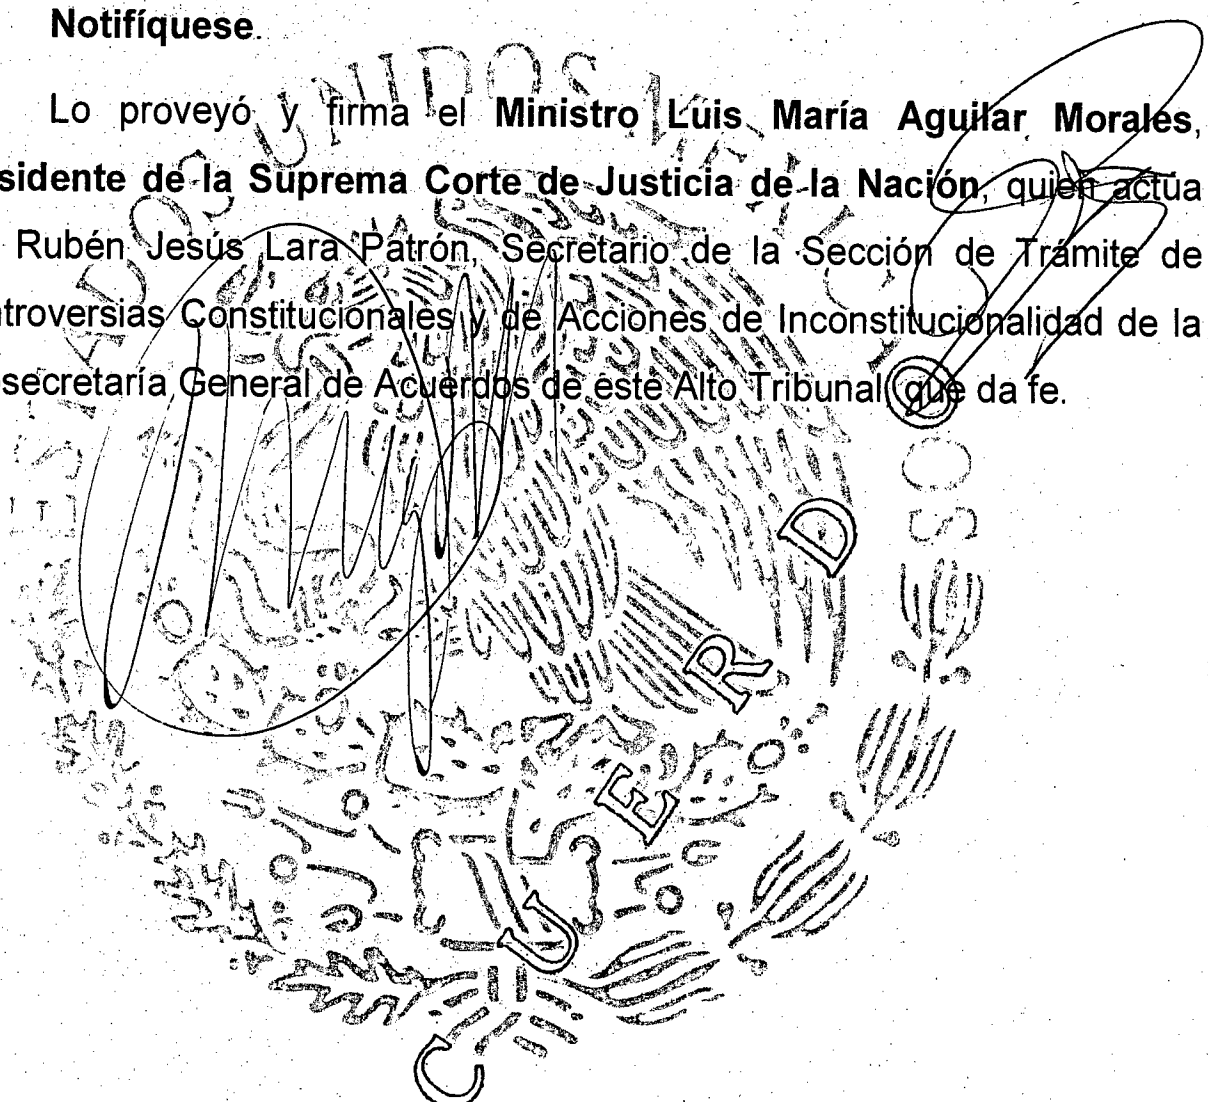 Notifíquese.
Lo proveyó y firma el Ministro Luis María Aguilar Morales,
sidente de la Suprema Corte de Justicia de la Nación, quien actúa
Rubén Jesús Lara Patrón, Secretario de la Sección de Trámite de
troversias Constitucionales y de Acciones de Inconstitucionalidad de la
secretaría General de Acuerdos de este Alto Tribunal, que da fe.
UNIDOS
D
R
E
U
C